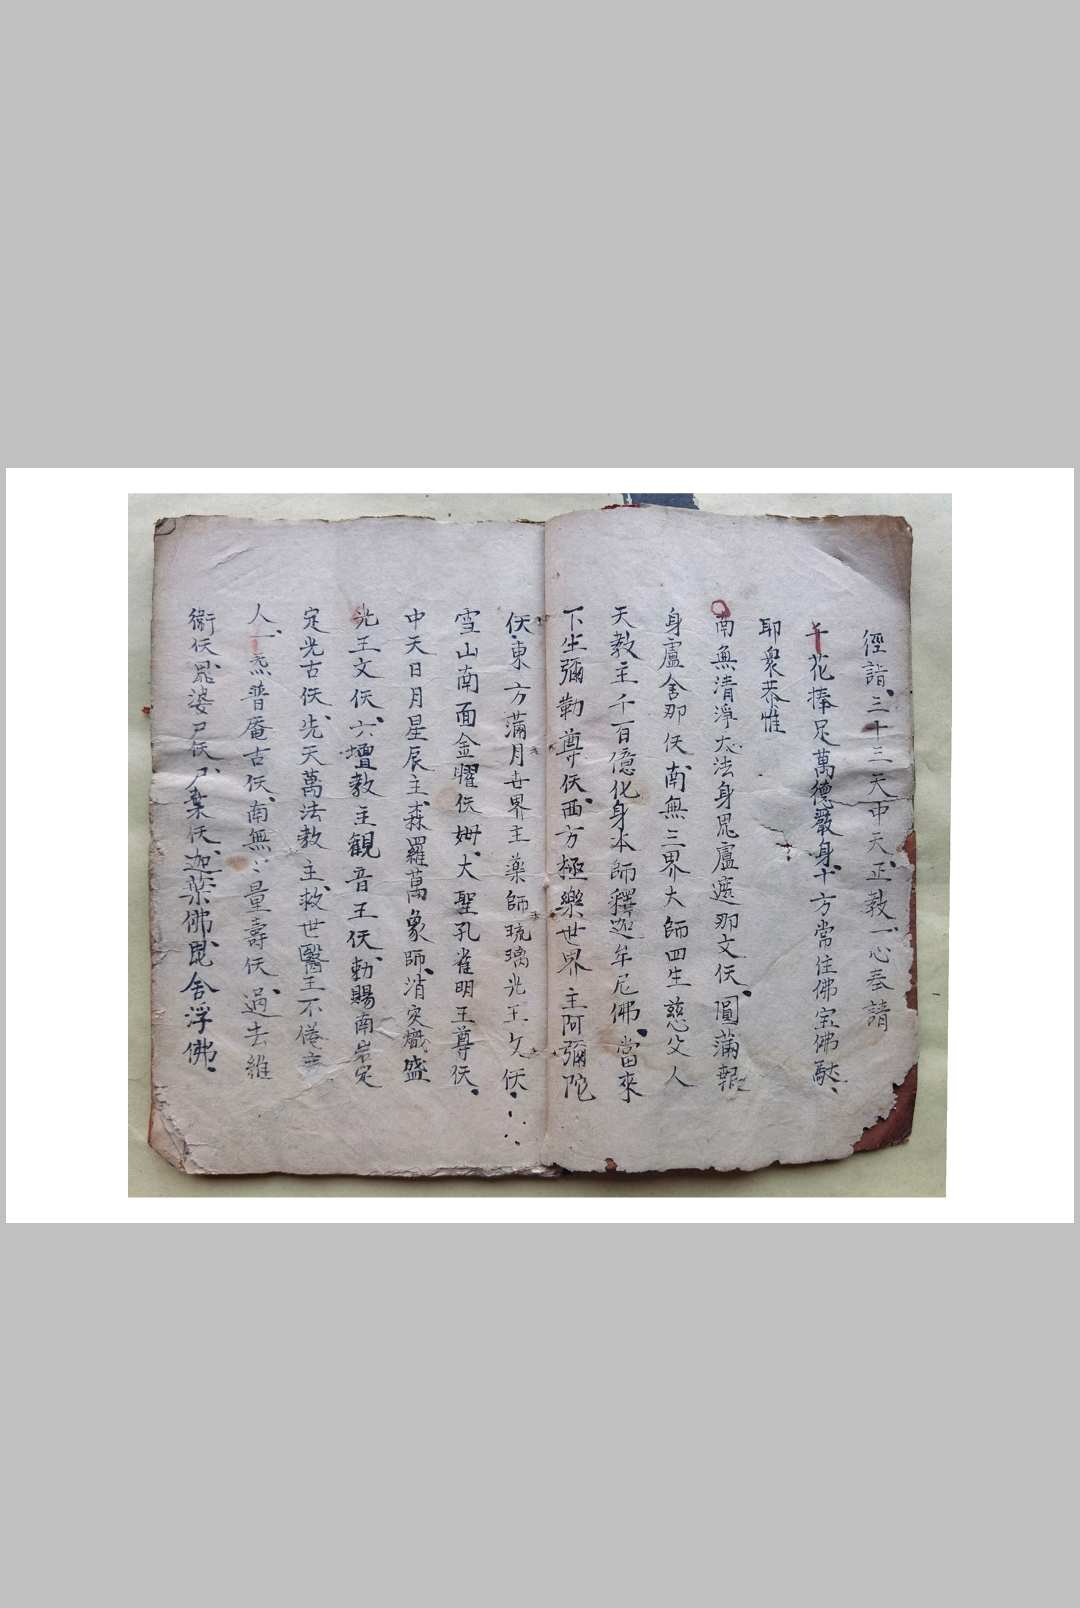 徑詣三十三天中天正教一心奉請
千花捧足萬德嚴身十方常住佛宝佛馱
耶衆恭惟
南無清淨大法身毘盧遮那文仸圓滿報
身盧舍那仸南無三界大師四生慈父人
天教主千百億化身本師釋迦牟尼佛當來
下生彌勒尊仸西方極樂世界主阿彌陀
仸東方滿月世界主藥師琉璃光王文仸
雪山南面金耀仸姆大聖孔雀明王尊仸
中天日月星辰主森羅萬象師消灾熾盛
光王文仸六壇教主觀音王仸勅賜南岩定
定光古仸先天萬法教主救世醫王不倦
人普庵古仸南無〻量壽仸過去維
衛仸毘婆尸仸尸棄仸迦葉佛毘舍浮佛